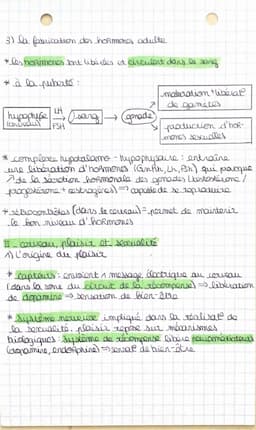 3) la fabrication des hormones adulte
* les hormones sont libérées et circulent dans le sang
* à la puberté :
maturation + libérat°
de gamètes
hypophyse
(cerveau)
LH
FSH
sang
gonade
production d'hor-
mones sexuelles
* complexe hypothalamo - hypophysaire : entraîne
une libération d'hormones (GnRH, LH, FSH) qui provoque
↗ de la sécrétion hormonale des gonades (testostérone /
progestérone + œstrogènes) ⇒ capable de se reproduire
* rétrocontrôles (dans le cerveau) = permet de maintenir
le bon niveau d'hormones
II - cerveau, plaisir et sexualité
1) L'origine du plaisir
* capteurs : envoient 1 message électrique au cerveau
(dans la zone du circuit de la récompense) ⇒ libération
de dopamine ⇒ sensation de bien-être
* système nerveux impliqué dans la réalisat° de
la sexualité. plaisir repose sur mécanismes
biologiques : système de récompense libère neuromédiateurs
(dopamine, endorphine) ⇒ sensat° de bien-être